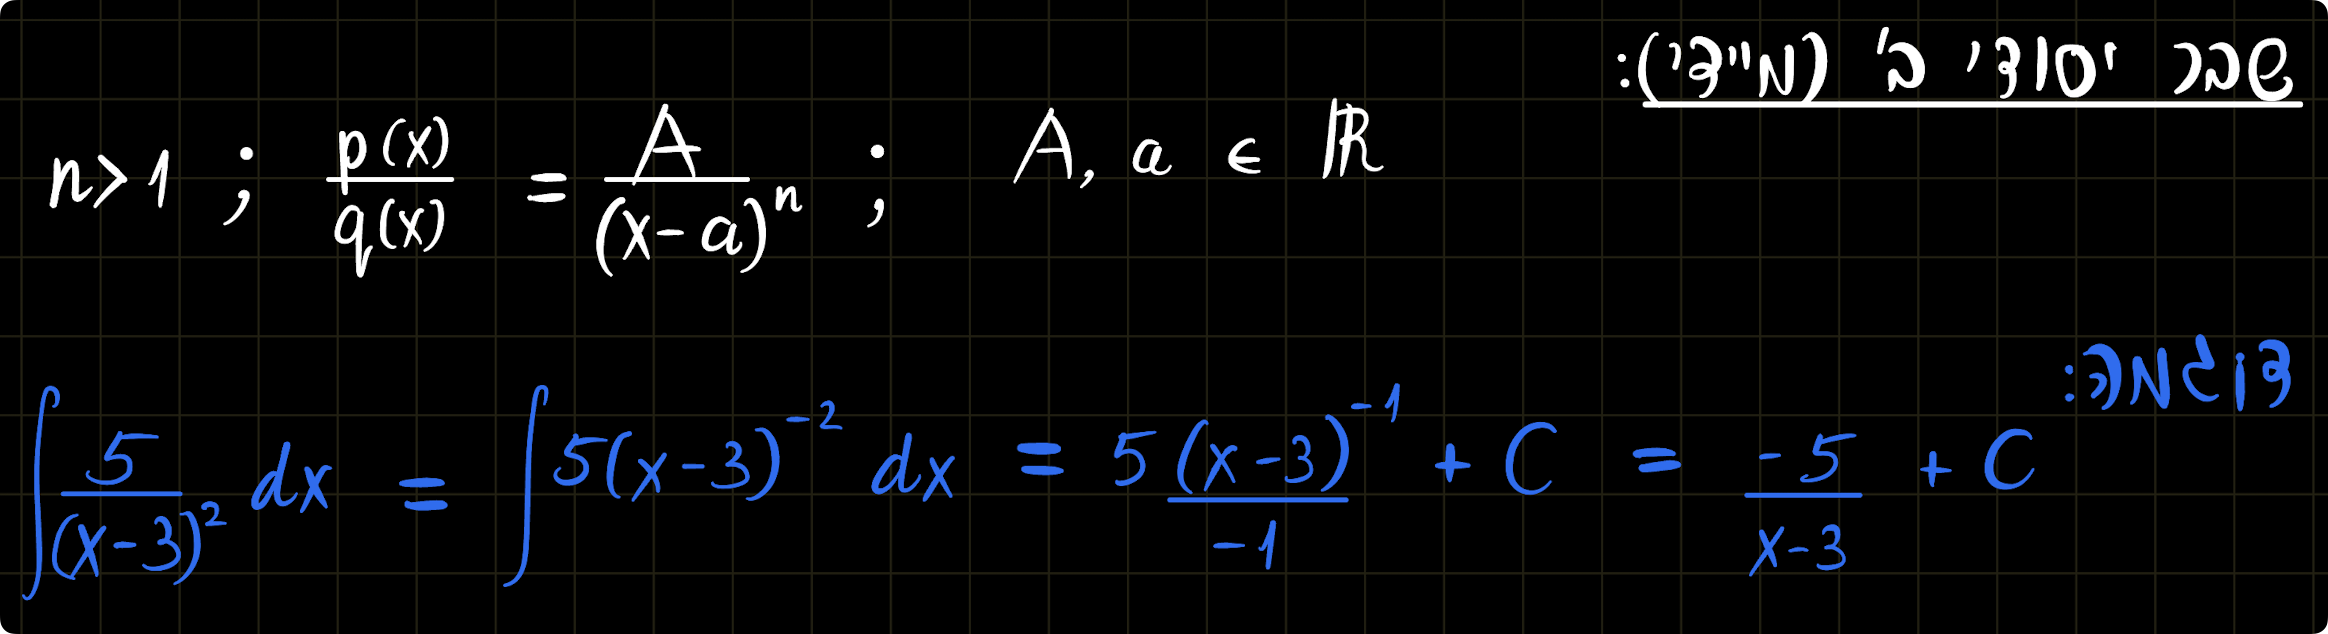 שבר יסודי ב' (מיידי):
n>1 ; p(x)/q(x) = A/(x-a)^n ; A, a ∈ ℝ
דוגמה:
∫ 5/(x-3)² dx = ∫ 5(x-3)^-2 dx = 5 (x-3)^-1/-1 + C = -5/x-3 + C